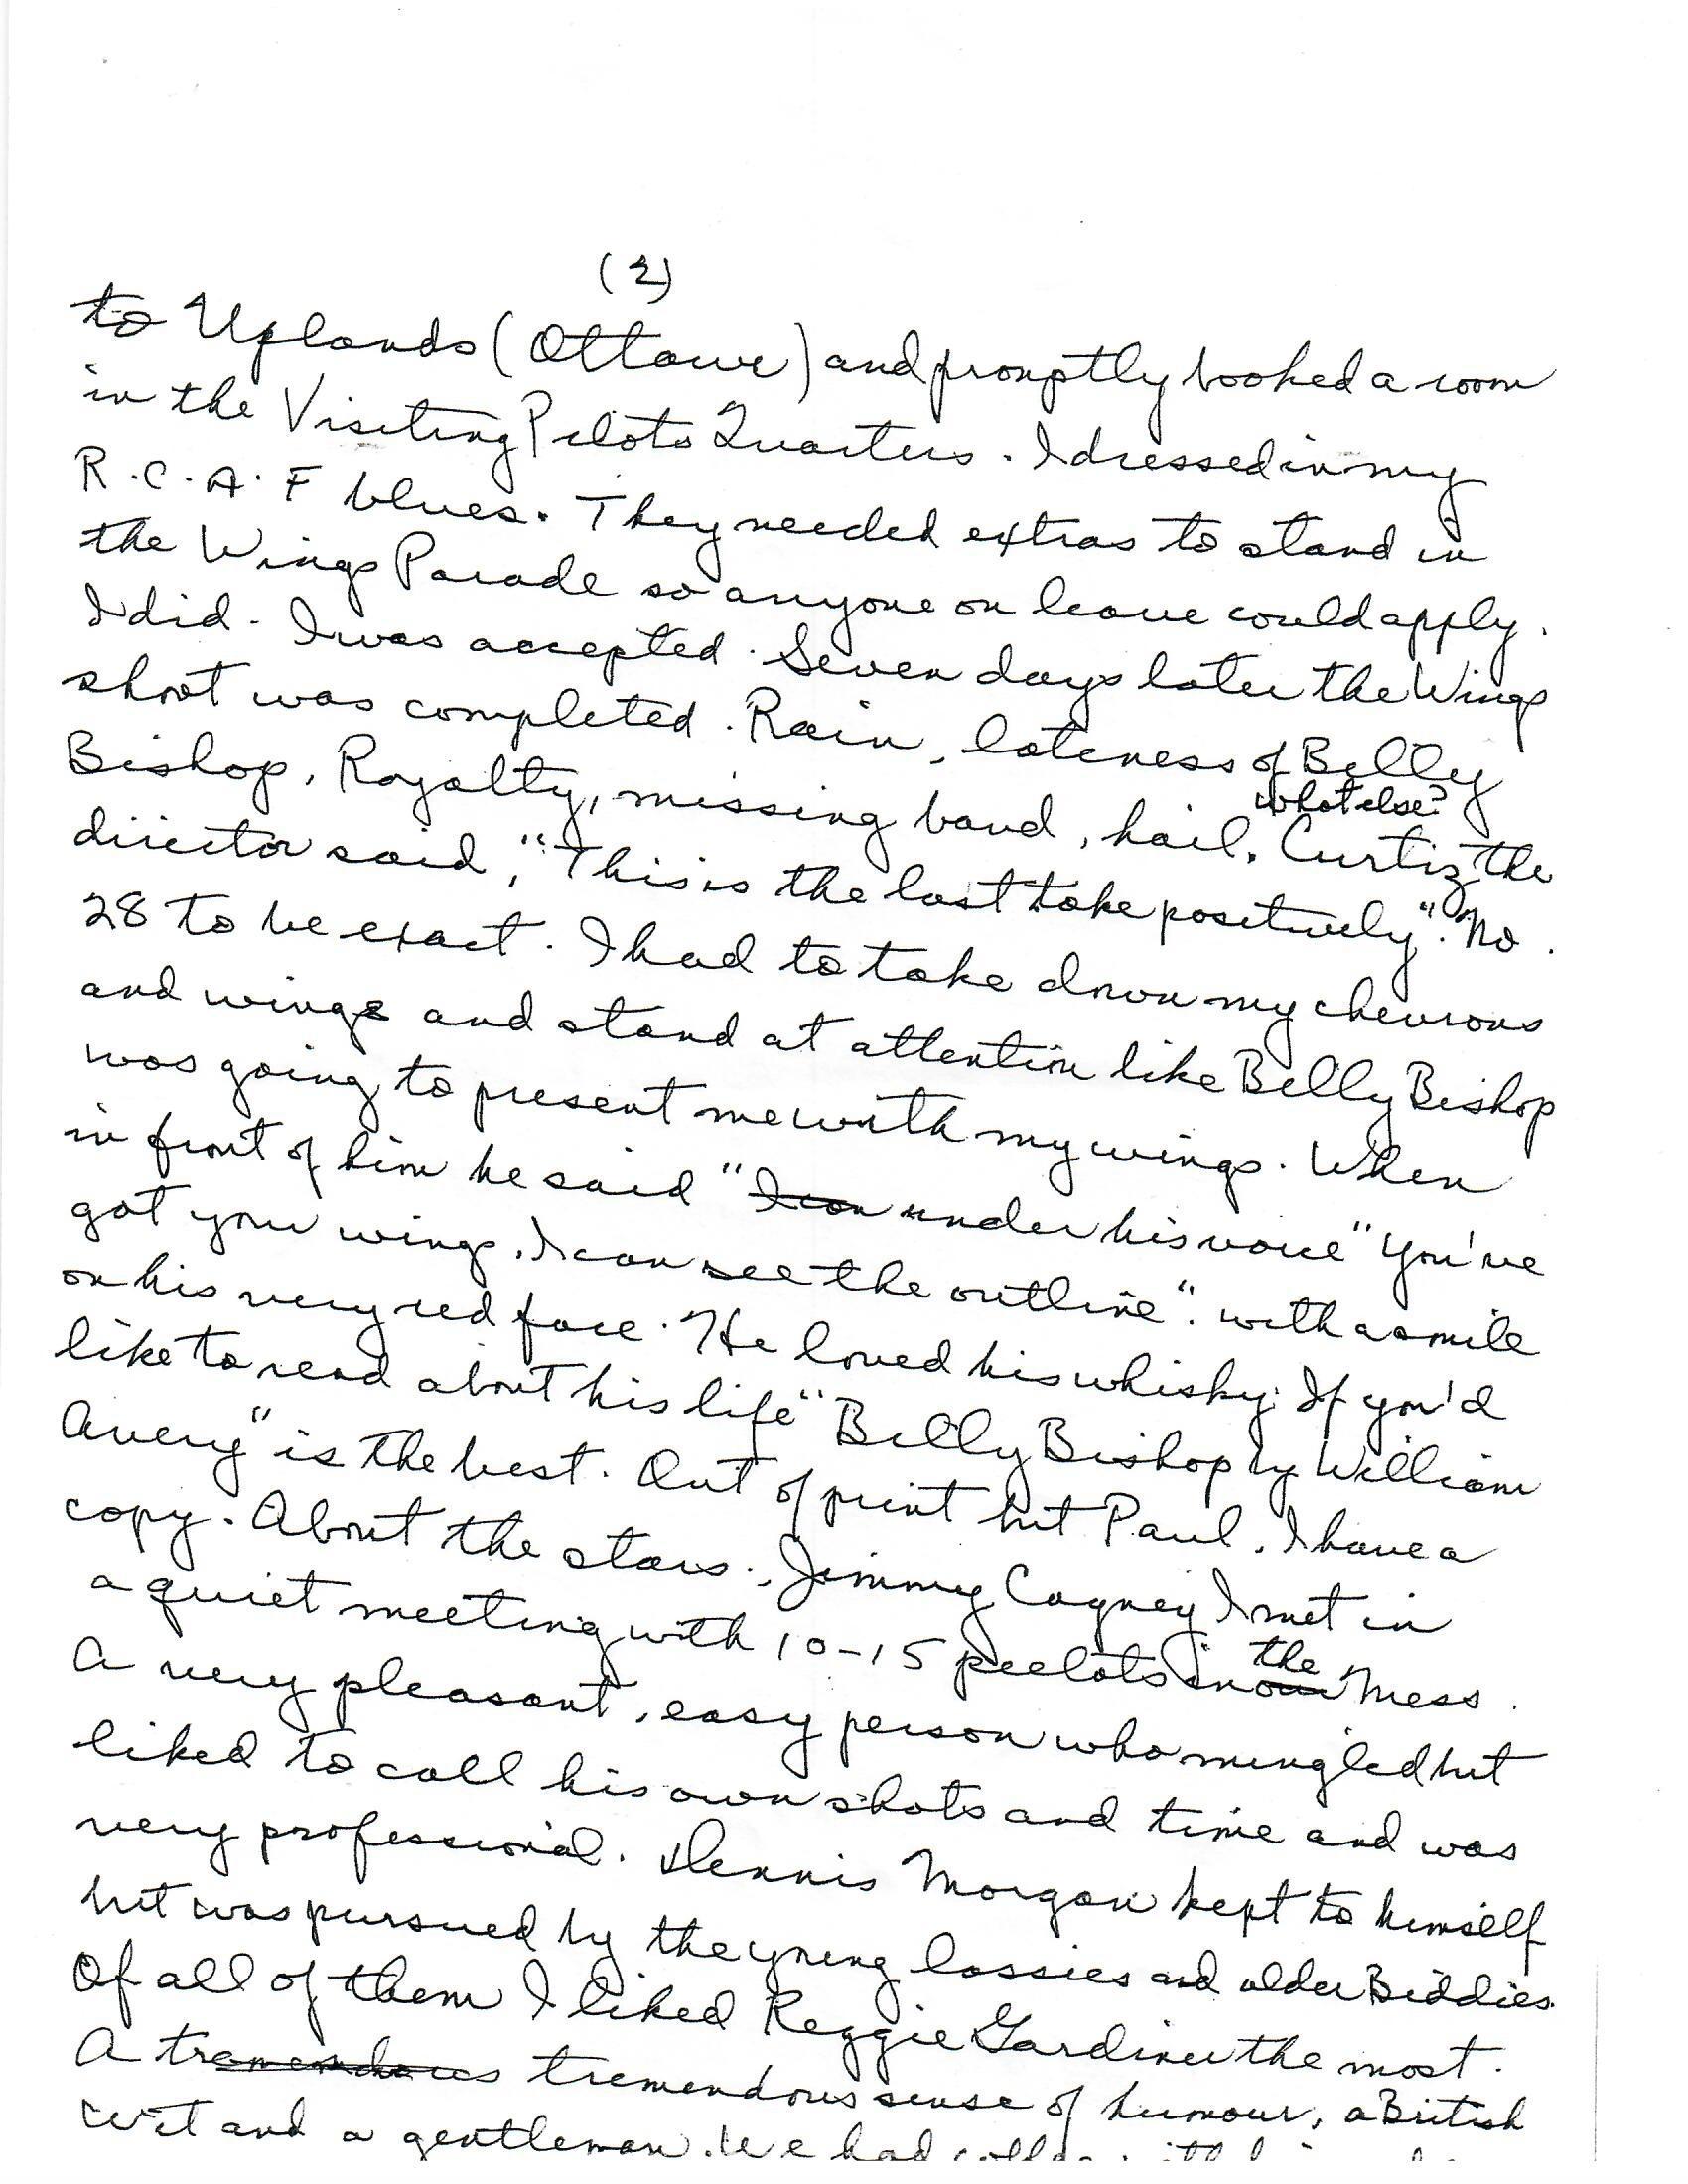 (2)
to Uplands (Ottawa) and promptly booked a room
in the Visiting Pilots Quarters. I dressed in my
R.C.A.F blues. They needed extras to stand in
the Wings Parade so anyone on leave could apply.
I did. I was accepted. Seven days later the Wings
shoot was completed. Rain, lateness of Billy
Bishop, Royalty, missing band, hail. what else? Curtiz the
director said, "This is the last take positively". No.
28 to be exact. I had to take down my chevrons
and wings and stand at attention like Billy Bishop
was going to present me with my wings. When
in front of him he said "I can under his voice "You've
got your wings. I can see the outline". with a smile
on his very red face. He loved his whisky. If you'd
like to read about his life "Billy Bishop by William
Avery" is the best. Out of print but Paul, I have a
copy. About the stars., Jimmy Cagney I met in
a quiet meeting with 10-15 peelots in our the Mess.
A very pleasant, easy person who mingled but
liked to call his own shots and time and was
very professional. Dennis Morgan kept to himself
but was pursued by the young lassies and older Biddies.
Of all of them I liked Reggie Gardiner the most.
A tremendous tremendous sense of humour, a British
wit and a gentleman. We had